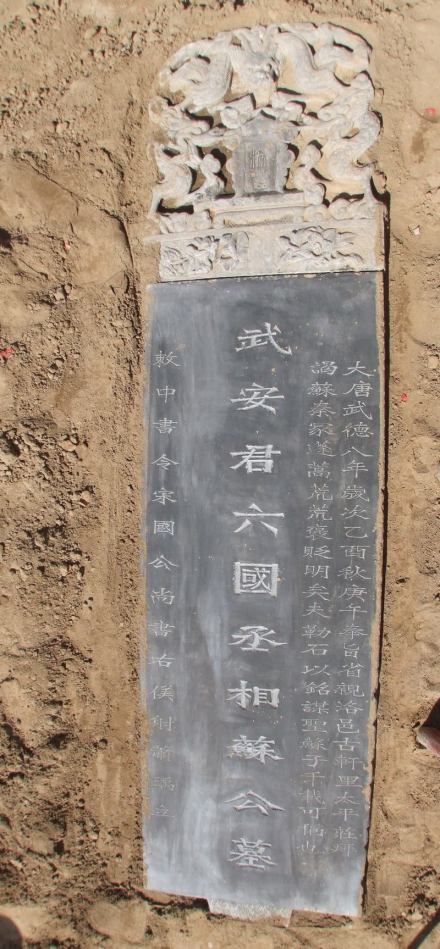 大唐武德八年歲次乙酉秋庚午奉旨省親洛邑古軒里太平莊拜
謁蘇秦冢蓬蒿荒荒褒貶明矣夫勒石以銘謀聖蘇子千載可俩也
武安君六國丞相蘇公墓
敕中書令宋國公尚書右僕射蕭瑀立